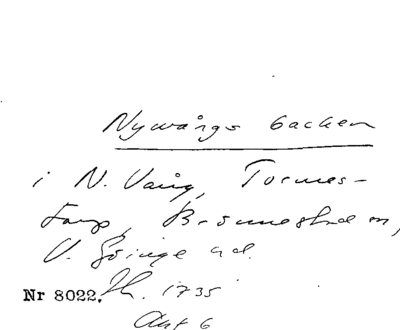 Nywångs backen
i N. Vång, Tormes-
torp, Brönnestad sn,
V. Göinge hd.
Nr 8022. Lh. 1735
Akt 6